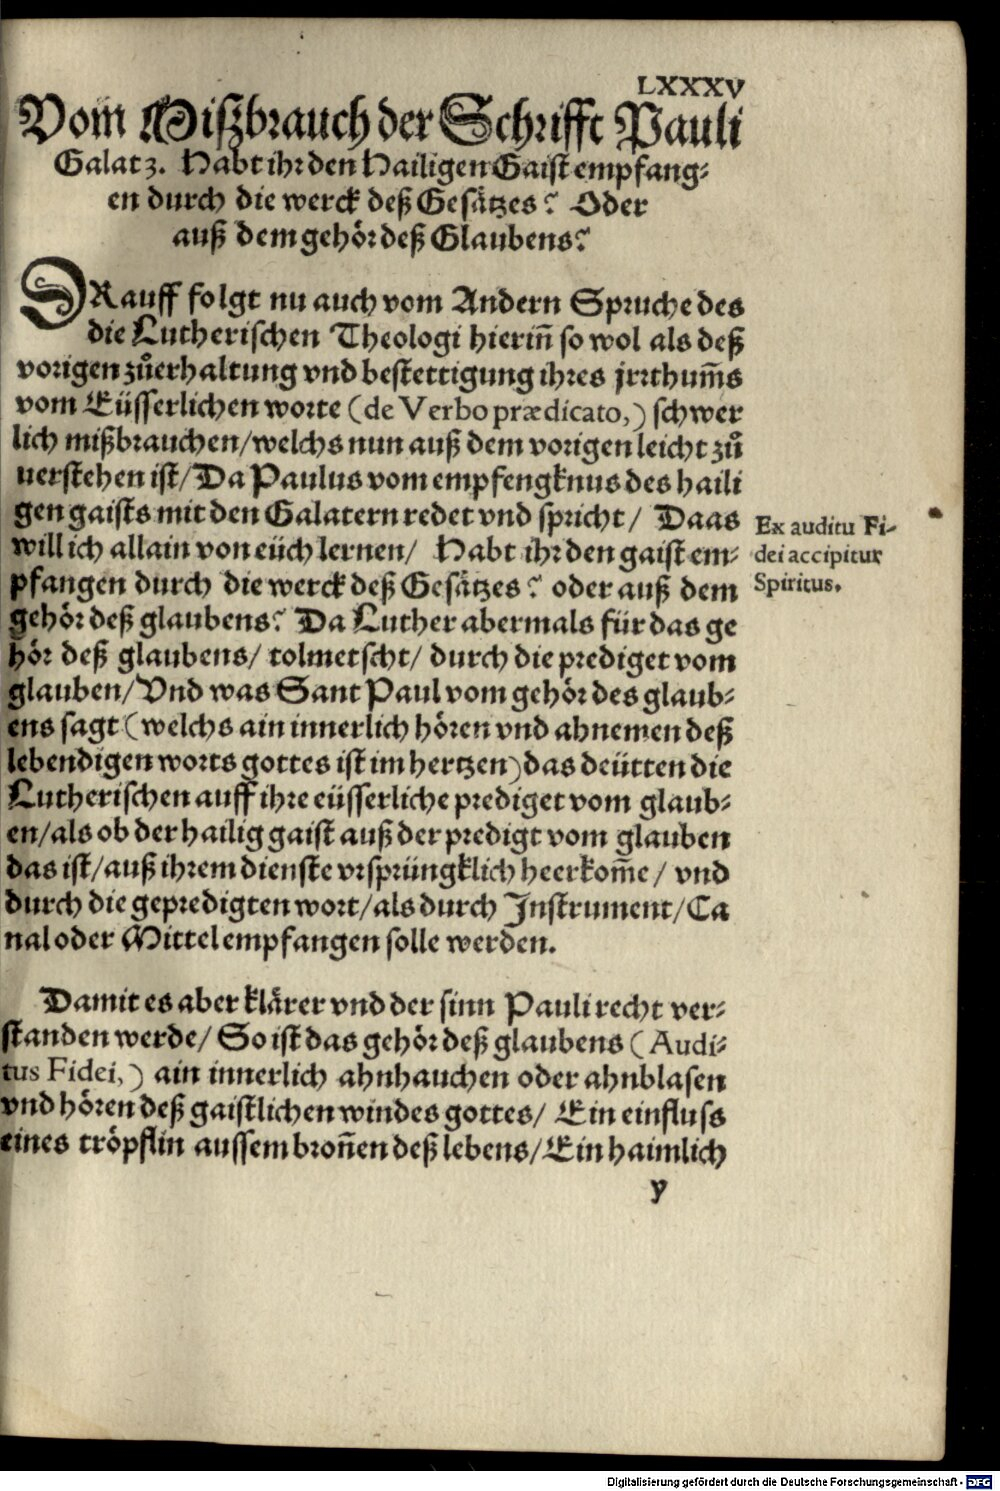 LXXXV
Vom Mißbrauch der Schrifft Pauli
Galat 3. Habt ihr den Hailigen Gaist empfang-
en durch die werck deß Gesätzes? Oder
auß dem gehör deß Glaubens?
DRauff folgt nu auch vom Andern Spruche des
die Lutherischen Theologi hierin̄ so wol als deß
vorigen zůerhaltung vnd bestettigung ihres jrrthum̄s
vom Eüsserlichen worte (de Verbo prædicato,) schwer
lich mißbrauchen/welchs nun auß dem vorigen leicht zů
uerstehen ist/Da Paulus vom empfengknus des haili
gen gaists mit den Galatern redet vnd spricht/ Daas
will ich allain von eüch lernen/ Habt ihr den gaist em-
pfangen durch die werck deß Gesätzes? oder auß dem
gehör deß glaubens? Da Luther abermals für das ge
hör deß glaubens/ tolmetscht/ durch die prediget vom
glauben/Vnd was Sant Paul vom gehör des glaub-
ens sagt (welchs ain innerlich hören vnd ahnemen deß
lebendigen worts gottes ist im hertzen) das deütten die
Lutherischen auff ihre eüsserliche prediget vom glaub-
en/als ob der hailig gaist auß der predigt vom glauben
das ist/auß ihrem dienste vrsprüngklich heerkom̄e/ vnd
durch die gepredigten wort/als durch Instrument/Ca
nal oder Mittel empfangen solle werden.
Ex auditu Fi-
dei accipitur
Spiritus.
Damit es aber klärer vnd der sinn Pauli recht ver-
standen werde/ So ist das gehör deß glaubens (Audi-
tus Fidei,) ain innerlich ahnhauchen oder ahnblasen
vnd hören deß gaistlichen windes gottes/ Ein einfluss
eines tröpflin aussem bron̄en deß lebens/Ein haimlich
y
Digitalisierung gefördert durch die Deutsche Forschungsgemeinschaft - DFG